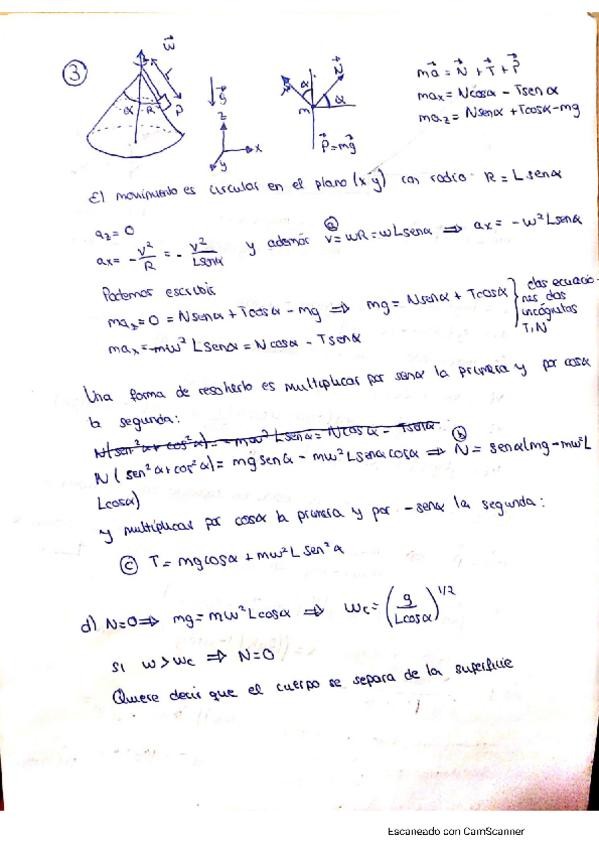 ③
ω⃗
L
α
R
P
g⃗
z
x
y
N⃗
α
α
m
P⃗=mg⃗
ma⃗ = N⃗ + T⃗ + P⃗
maₓ = Ncosα - Tsenα
ma_z = Nsenα + Tcosα - mg
El movimiento es circular en el plano (x y) con radio R = L senα
a_z = 0
aₓ = - v²/R = - v²/Lsenα y además ⓐ v = ωR = ωLsenα ⟹ aₓ = - ω²Lsenα
Podemos escribir
ma_z = 0 = Nsenα + Tcosα - mg ⟹ mg = Nsenα + Tcosα
maₓ = -mω² Lsenα = Ncosα - Tsenα
dos ecuacio-
nes dos
incógnitas
T, N
Una forma de resolverlo es multiplicar por senα la primera y por cosα
la segunda:
N(sen²α + cos²α) = - mω² Lsenα = Ncosα - Tsenα
N (sen²α + cos²α) = mg senα - mω² Lsenα cosα ⟹ ⓑ N = senα(mg - mω²L
Lcosα)
y multiplicar por cosα la primera y por -senα la segunda:
ⓒ T = mg cosα + mω² L sen²α
d) N=0 ⟹ mg = mω² Lcosα ⟹ ωc = (g/Lcosα)^1/2
si ω > ωc ⟹ N=0
Quiere decir que el cuerpo se separa de la superficie
Escaneado con CamScanner